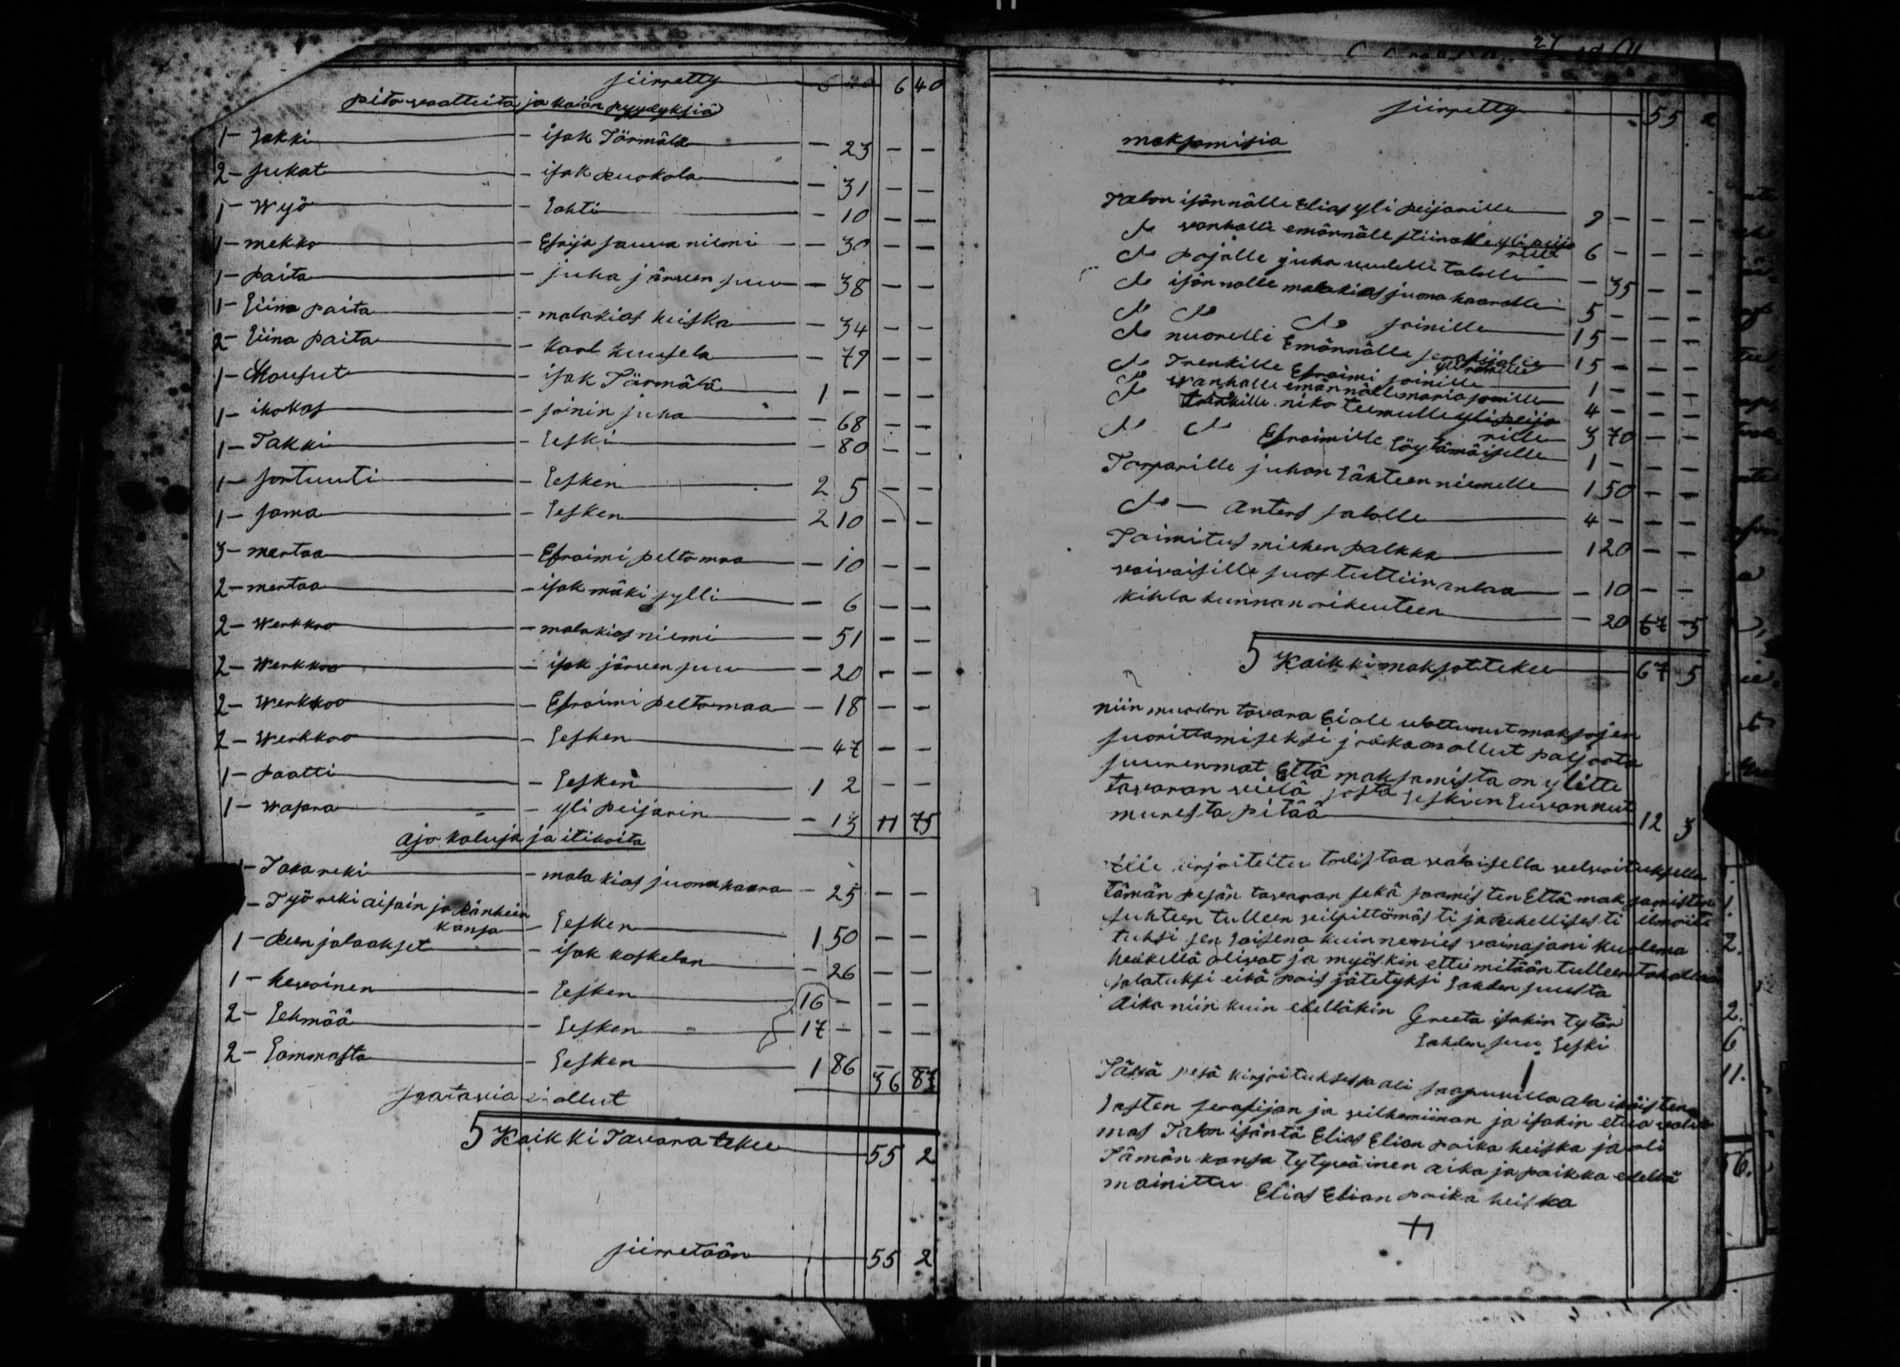 siirretty 6 40
pito vaatteita ja kalan pyydyksiä
1 - Takki - isak Törmälä - 23 - -
2 - sukat - isak Ruokola - 31 - -
1 - Wyö - Lahti - 10 - -
1 - mekko - Esrija sauva niemi - 30 - -
1 - paita - juha järwen suu - 38 - -
1 - Liina paita - malakias heiska - 34 - -
2 - Liina paita - Karl Kuusela - 79 - -
1 - Housut - isak Törmälä 1 - - -
1 - ihokas - joinin juha - 68 - -
1 - Takki - Leski - 80 - -
1 - sortuuti - Lesken 2 5 - -
1 - sama - Lesken 2 10 - -
3 - mertaa - Efraimi peltomaa - 10 - -
2 - mertaa - isak mäki jylli - 6 - -
2 - Werkkoo - malakias niemi - 51 - -
2 - Werkkoo - isak järwen suu - 20 - -
2 - Werkkoo - Efraimi peltomaa - 18 - -
2 - Werkkoo - Lesken - 47 - -
1 - paatti - Lesken 1 2 - -
1 - wasara - yli peijarin - 13 11 75
ajo kaluja ja itikoita
1 - Taka reki - malakias juonukaara - 25 - -
- Työ reki aisain ja länkein
kansa - Lesken 1 50 - -
1 - Reen jalaakset - isak koskelan - 26 - -
1 - hewoinen - Lesken 16 - - -
2 - Lehmää - Lesken 17 - - -
2 - Lammasta - Lesken 1 86 36 87
saatavia ei ollut
5 Kaikki Tavara tekee 55 2
siirretään 55 2
siirretty 55 2
maksamisia
Talon isännälle Elias yli peijarille 9 - - -
do vanhalle emännälle stiinalle yli peija
rille 6 - - -
do pajalle juha uudelle talolle - 35 - -
do isännälle malakias juonukaaralle 5 - - -
do do do joinille 15 - - -
do nuorelle Emännälle serafiialle 15 - - -
do Trenkille Efraimi joinille 1 - - -
do Wanhalle emännälle maria joinille 4 - - -
do trenkille niko teemulle yli peija
rille 3 70 - -
do do Efraimille Löytämäiselle 1 - - -
Torparille juhan Lähteen niemelle 1 50 - -
do - Anters salolle 4 - - -
Toimitus miehen palkka 1 20 - -
vaivaisille suostuttiin antaa - 10 - -
kihla kunnan oikeuteen - 20 67 5
5 Kaikki maksot tekee 67 5
niin muodon tavara Ei ole ulottunut maksojen
suorittamiseksi joka on ollut paljoota
suuremmat Että maksamista on ylitte
tavaran vielä josta Leskien Luvannut
muresta pitää 12 3
tämän pesän tavaran sekä saamisten Että maksamisten
suhteen tulleen vilpittömästi ja rehellisesti ilmoite
tuksi sen laisena kuin ne mies vainajani kuolema
hetkellä olivat ja myöskin ettei mitään tulleen
salatuksi eikä pois jätetyksi Lahden suusta
Aika niin kuin edelläkin Greeta isakin tytär
Lahden suu Leski
Tässä pesä kirjoituksessa oli saapuvilla ala ikäisten
Lasten serafijan ja vilhemiinan ja isakin etua
mas Talon isäntä Elias Elian poika heiska ja oli
Tämän kansa tytyväinen aika ja paikka edellä
mainittu Elias Elian poika heiska